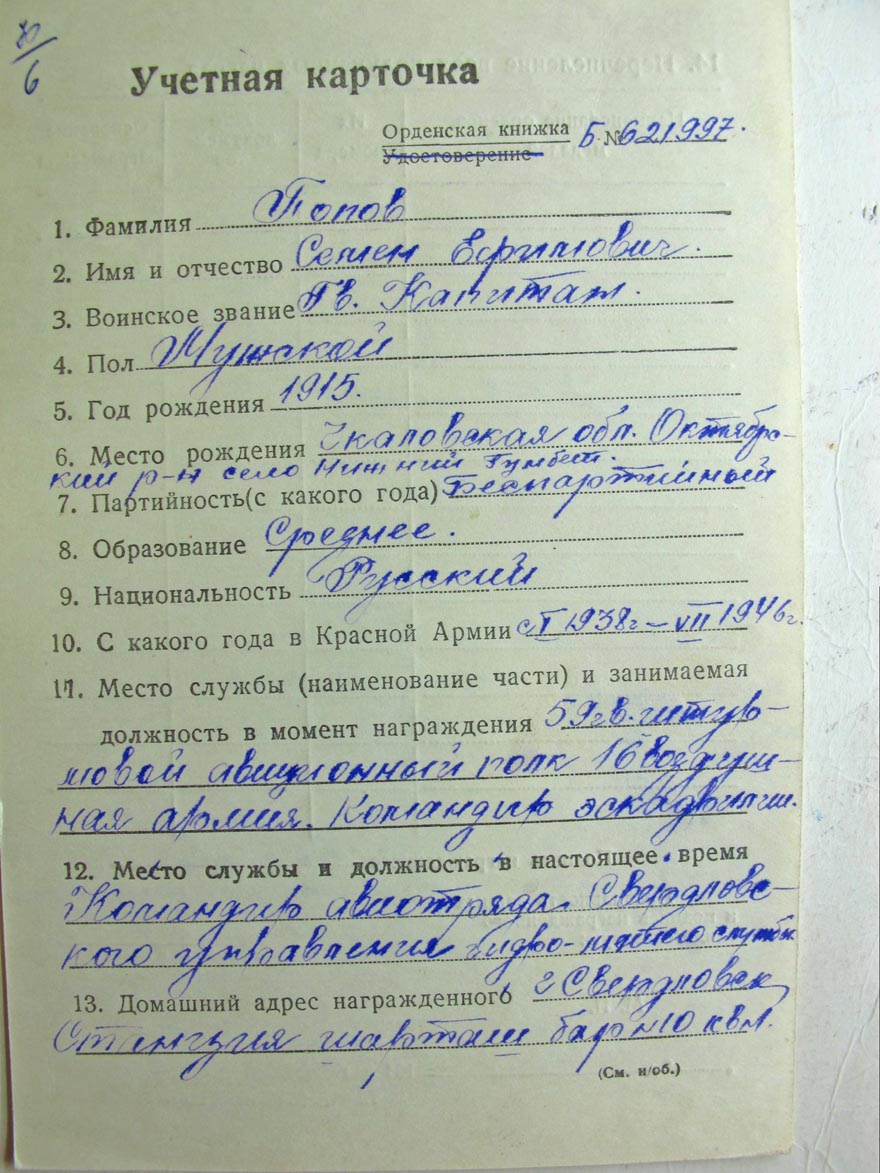 Учетная карточка
Орденская книжка Б №621997.
Удостоверение
1. Фамилия Попов
2. Имя и отчество Семен Ефимович.
3. Воинское звание Гв. Капитан.
4. Пол Мужской
5. Год рождения 1915.
6. Место рождения Чкаловская обл. Октябрс-
кий р-н село Нижний Гумбет.
7. Партийность(с какого года) Беспартийный
8. Образование Среднее.
9. Национальность Русский
10. С какого года в Красной Армии с I 1938г – VII 1946г.
11. Место службы (наименование части) и занимаемая
должность в момент награждения 59 гв. штур-
мовой авиционный полк 16 воздуш-
ная армия. Командир эскадрильи.
12. Место службы и должность в настоящее время
Командир авиотряда. Свердловс-
кого управления службы
13. Домашний адрес награжденного г Свердловск
Станция шарташ бар №10 кв 1.
(См. н/об.)